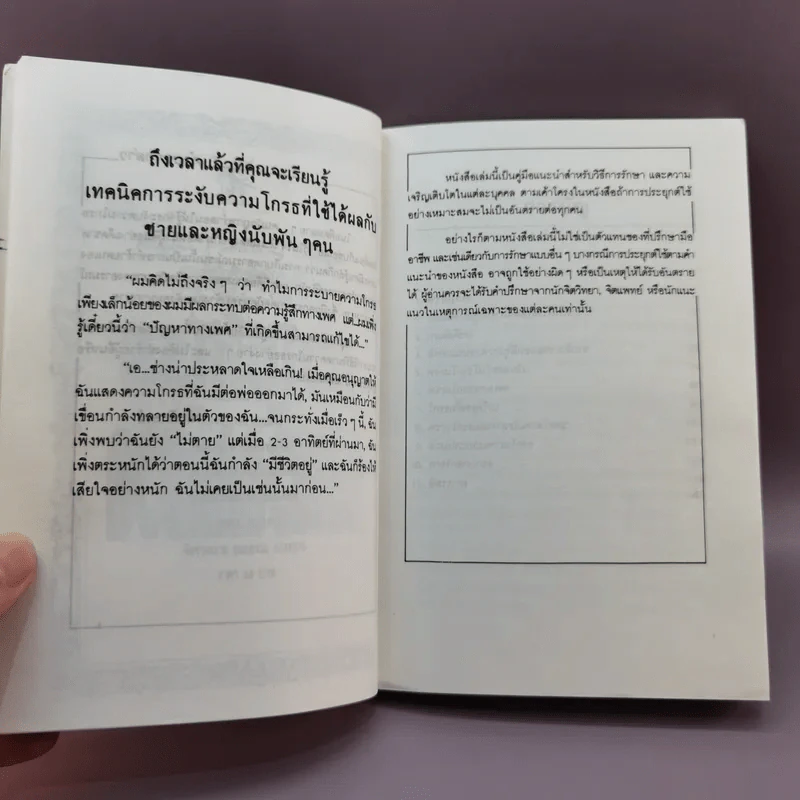 ถึงเวลาแล้วที่คุณจะเรียนรู้
เทคนิคการระงับความโกรธที่ใช้ได้ผลกับ
ชายและหญิงนับพัน ๆคน
“ผมคิดไม่ถึงจริง ๆ ว่า ทำไมการระบายความโกรธ
เพียงเล็กน้อยของผมมีผลกระทบต่อความรู้สึกทางเพศ แต่...ผมเพิ่ง
รู้เดี๋ยวนี้ว่า “ปัญหาทางเพศ” ที่เกิดขึ้นสามารถแก้ไขได้...”
“เอ...ช่างน่าประหลาดใจเหลือเกิน! เมื่อคุณอนุญาตให้
ฉันแสดงความโกรธที่ฉันมีต่อพ่อออกมาได้, มันเหมือนกับว่ามี
เขื่อนกำลังทลายอยู่ในตัวของฉัน...จนกระทั่งเมื่อเร็ว ๆ นี้, ฉัน
เพิ่งพบว่าฉันยัง “ไม่ตาย” แต่เมื่อ 2-3 อาทิตย์ที่ผ่านมา, ฉัน
เพิ่งตระหนักได้ว่าตอนนี้ฉันกำลัง “มีชีวิตอยู่” และฉันก็ร้องไห้
เสียใจอย่างหนัก ฉันไม่เคยเป็นเช่นนั้นมาก่อน...”
หนังสือเล่มนี้เป็นคู่มือแนะนำสำหรับวิธีการรักษา และความ
เจริญเติบโตในแต่ละบุคคล ตามเค้าโครงในหนังสือถ้าการประยุกต์ใช้
อย่างเหมาะสมจะไม่เป็นอันตรายต่อทุกคน
อย่างไรก็ตามหนังสือเล่มนี้ไม่ใช่เป็นตัวแทนของที่ปรึกษามือ
อาชีพ และเช่นเดียวกับการรักษาแบบอื่น ๆ บางกรณีการประยุกต์ใช้ตามคำ
แนะนำของหนังสือ อาจถูกใช้อย่างผิด ๆ หรือเป็นเหตุให้ได้รับอันตราย
ได้ ผู้อ่านควรจะได้รับคำปรึกษาจากนักจิตวิทยา, จิตแพทย์ หรือนักแนะ
แนวในเหตุการณ์เฉพาะของแต่ละคนเท่านั้น